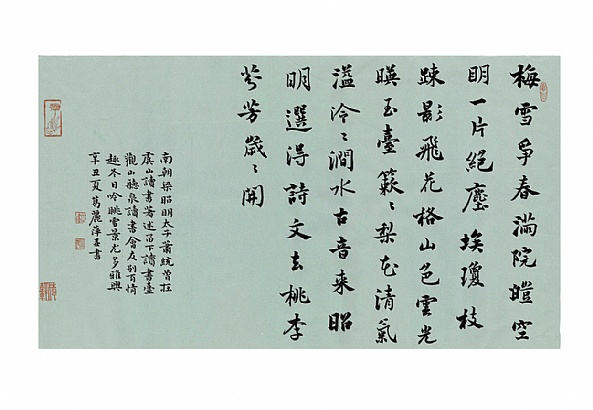 梅雪爭春滿院皚空
明一片絕塵埃瓊枝
踈影飛花格山色雲光
暎玉臺簌〻梨花清氣
溢泠〻澗水古音来昭
明選得詩文去桃李
芬芳歲〻開
南朝梁昭明太子蕭統曾在
虞山讀書著述留下讀書臺
觀山聽泉讀書會友別有情
趣冬日吟眺雪景尤多雅興
辛丑夏葛麗萍書